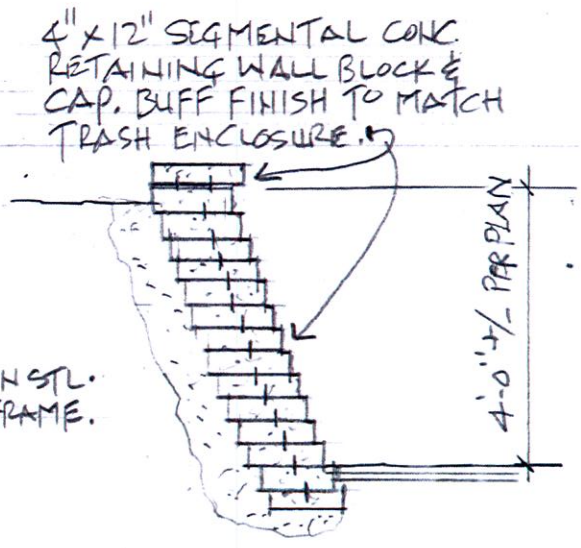 4" x 12" SEGMENTAL CONC.
RETAINING WALL BLOCK &
CAP. BUFF FINISH TO MATCH
TRASH ENCLOSURE.
4'-0" +/- PER PLAN
N STL.
FRAME.